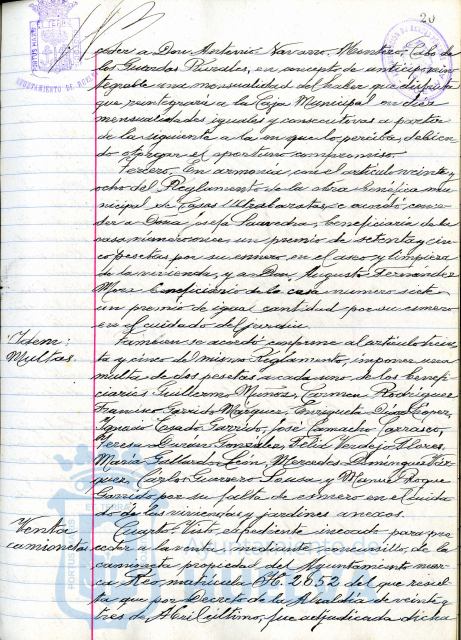 20
ceder a Don Antonio Navarro Montero, Cabo de
los Guardas Rurales, en concepto de anticipo rein-
tegrable una mensualidad del haber que disfruta
que reintegrará a la Caja Municipal en diez
mensualidades iguales y consecutivas a partir
de la siguiente a la en que lo perciba, debien-
do otorgar el oportuno compromiso.
Tercero. En armonía con el artículo veinte y
ocho del Reglamento de la obra benéfica mu-
nicipal de Casas Ultrabaratas, se acordó, conce-
der a Doña Josefa Saavedra, beneficiaria de la
casa número once un premio de setenta y cin-
co pesetas por su esmero en el aseo y limpieza
de la vivienda, y a Don Augusto Fernández
beneficiario de la casa número siete
un premio de igual cantidad por su esmero
en el cuidado del jardín.
Idem:
Multas.
También se acordó conforme al artículo trein-
ta y cinco del mismo Reglamento, imponer una
multa de dos pesetas a cada uno de los benefi-
ciarios Guillermo Muños, Carmen Rodríguez
Francisco Garrido Márquez, Enriqueta Díaz López,
Ignacio Casado Garrido, José Camacho Carrasco,
Teresa Durán González, Felix Verdejo Flores,
María Gallardo León, Mercedes Domínguez Váz-
quez, Carlos Guerrero Sousa, y Manuel Roque
Garrido por su falta de esmero en el cuida-
do de las viviendas y jardines anexos.
Venta
camioneta
Cuarto. Visto expediente incoado para pro-
ceder a la venta mediante concursillo, de la
camioneta propiedad del Ayuntamiento mar-
ca Reo matrícula H. 2652 del que resul-
ta que por Decreto de la Alcaldía de veinte y
tres de Abril último, fue adjudicada dicha